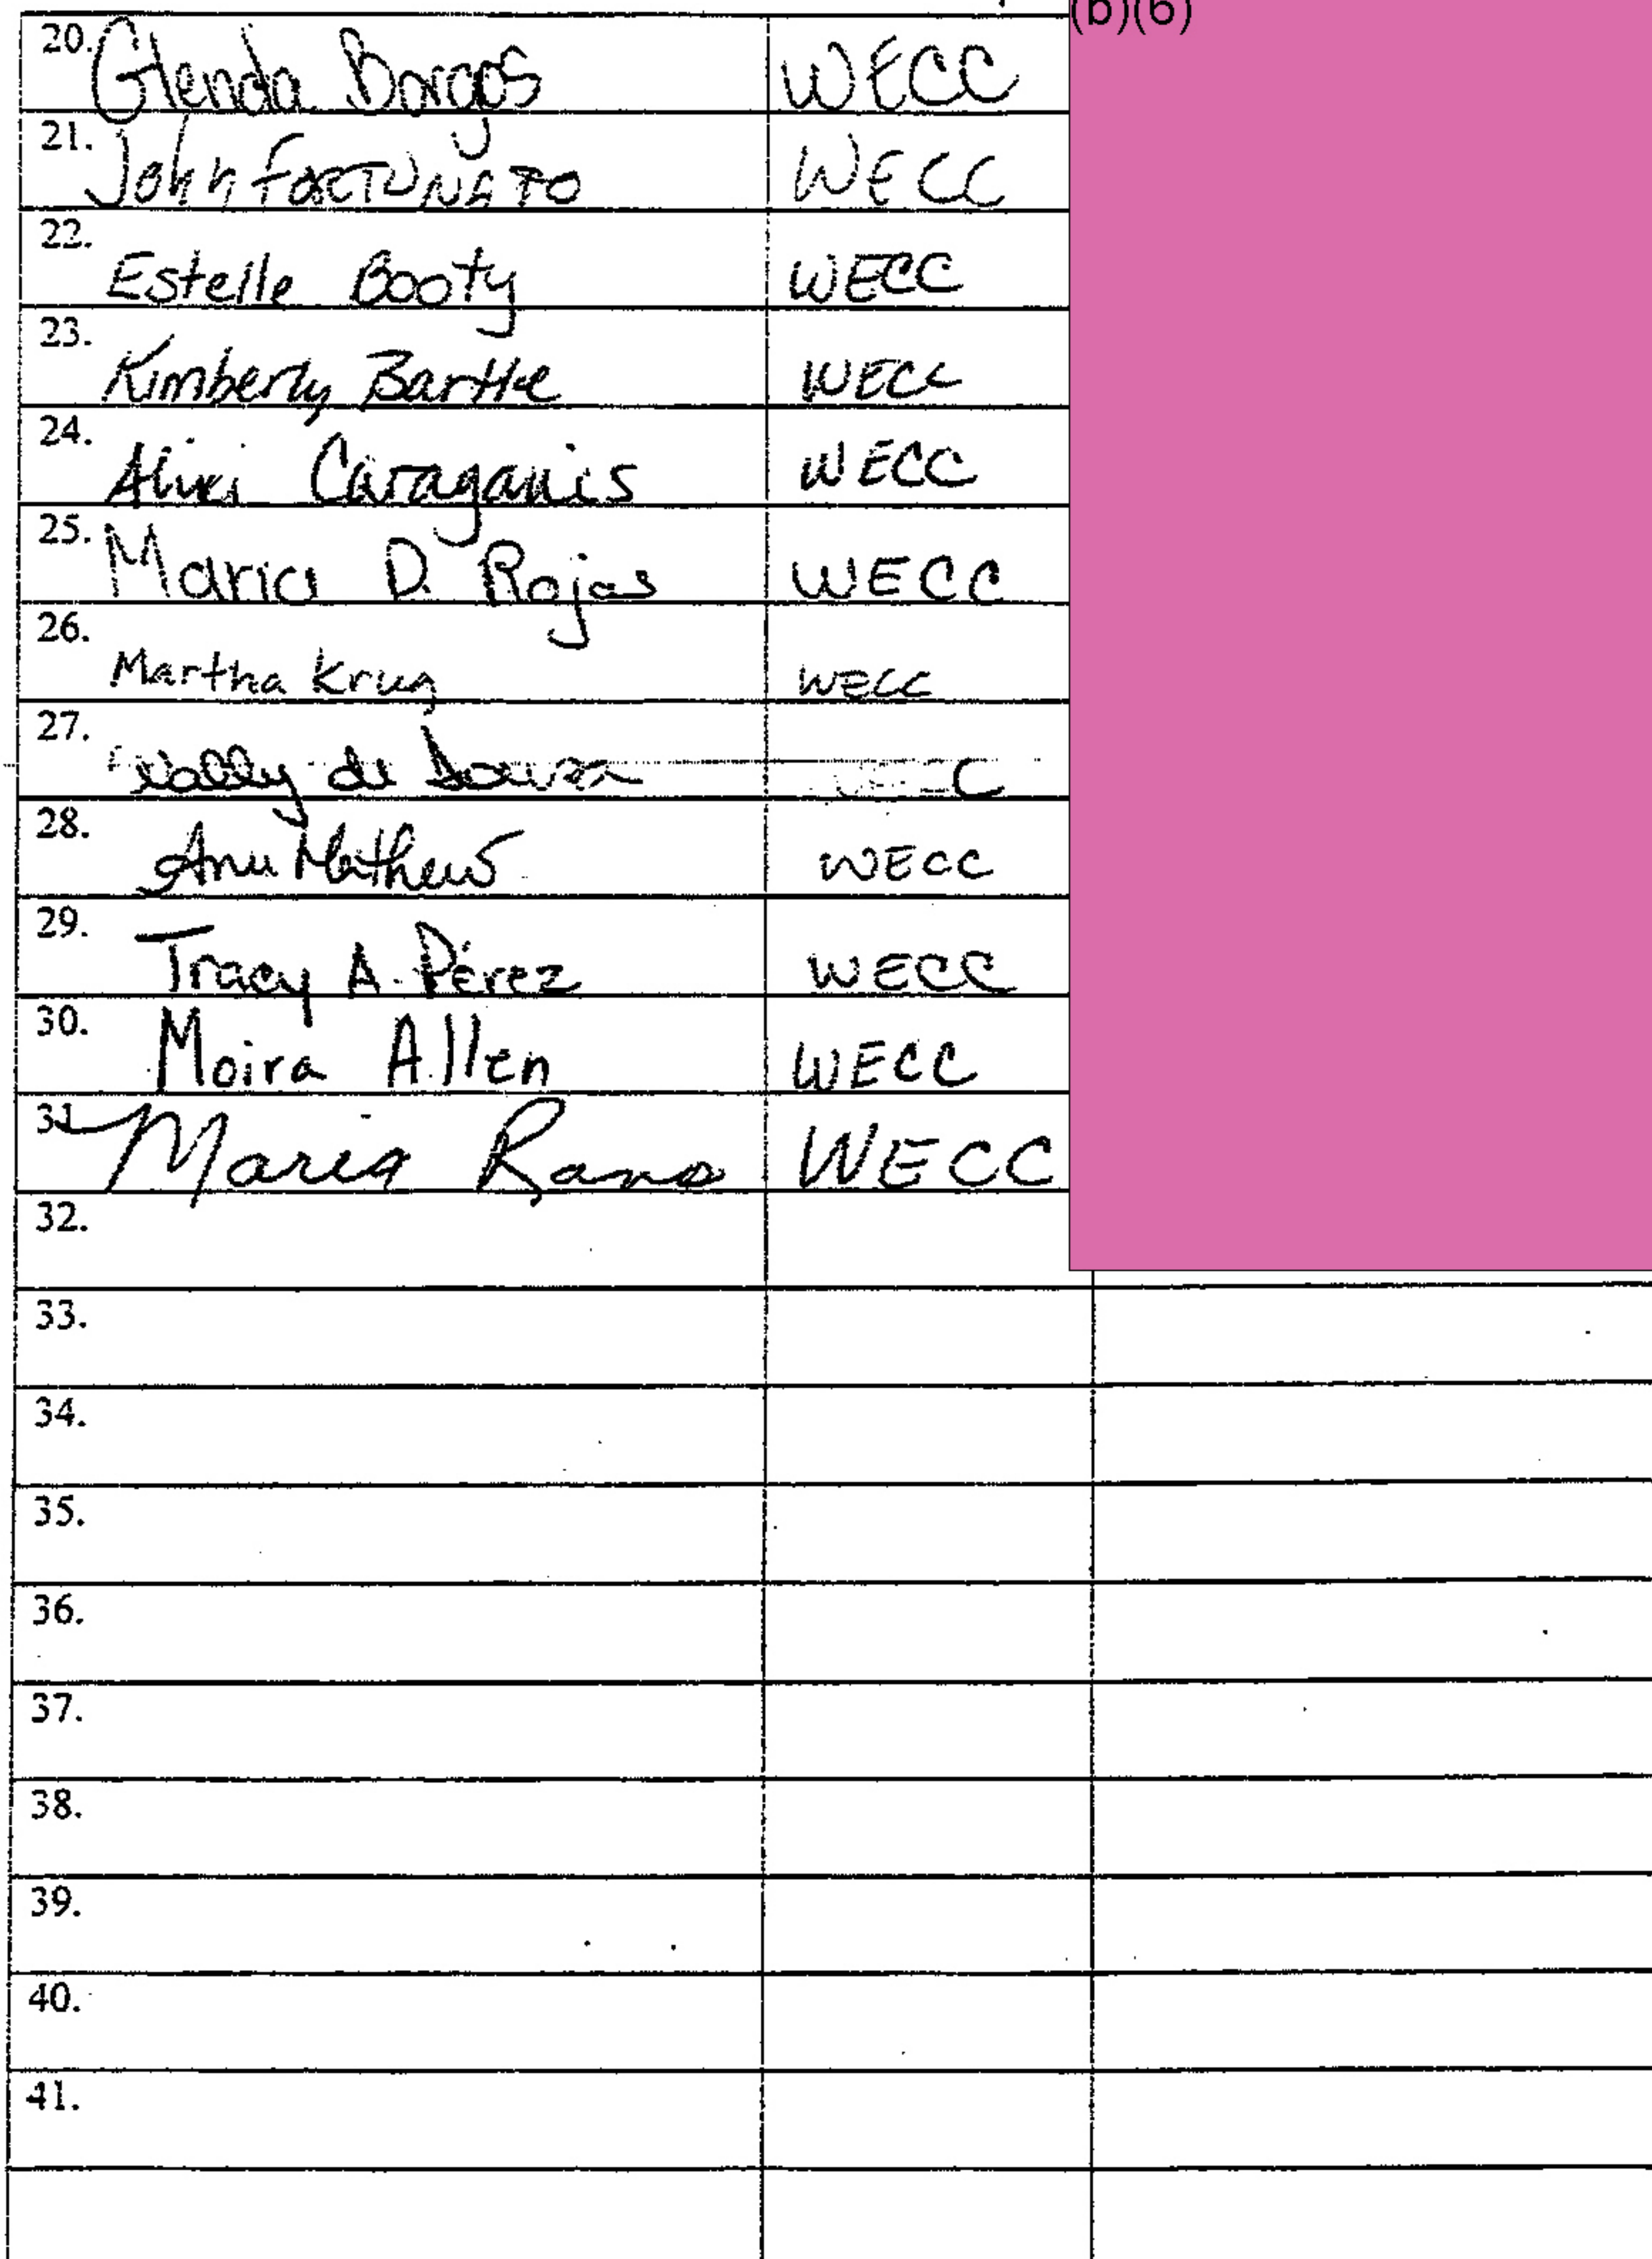 (b)(6)
20. Glenda Borgos WECC
21. John FORTUNATO WECC
22. Estelle Booty WECC
23. Kimberly Barthe WECC
24. Aliki Caraganis WECC
25. Maria D. Rojas WECC
26. Martha Krug WECC
27. de Souza
28. Anu Mathew WECC
29. Tracy A. Pérez WECC
30. Moira Allen WECC
31. Maria WECC
32.
33.
34.
35.
36.
37.
38.
39.
40.
41.